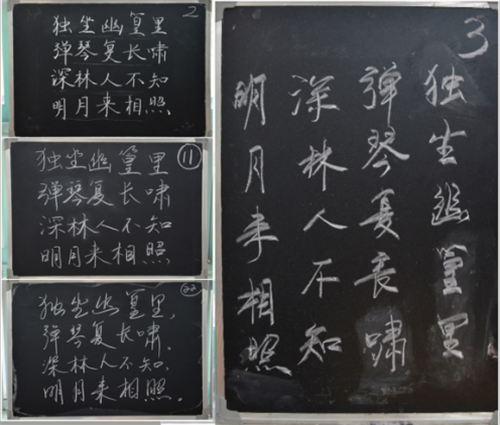 2
独坐幽篁里
弹琴复长啸
深林人不知
明月来相照
11
独坐幽篁里
弹琴复长啸
深林人不知
明月来相照
22
独坐幽篁里,
弹琴复长啸.
深林人不知.
明月来相照.
3
独坐幽篁里
弹琴复长啸
深林人不知
明月来相照